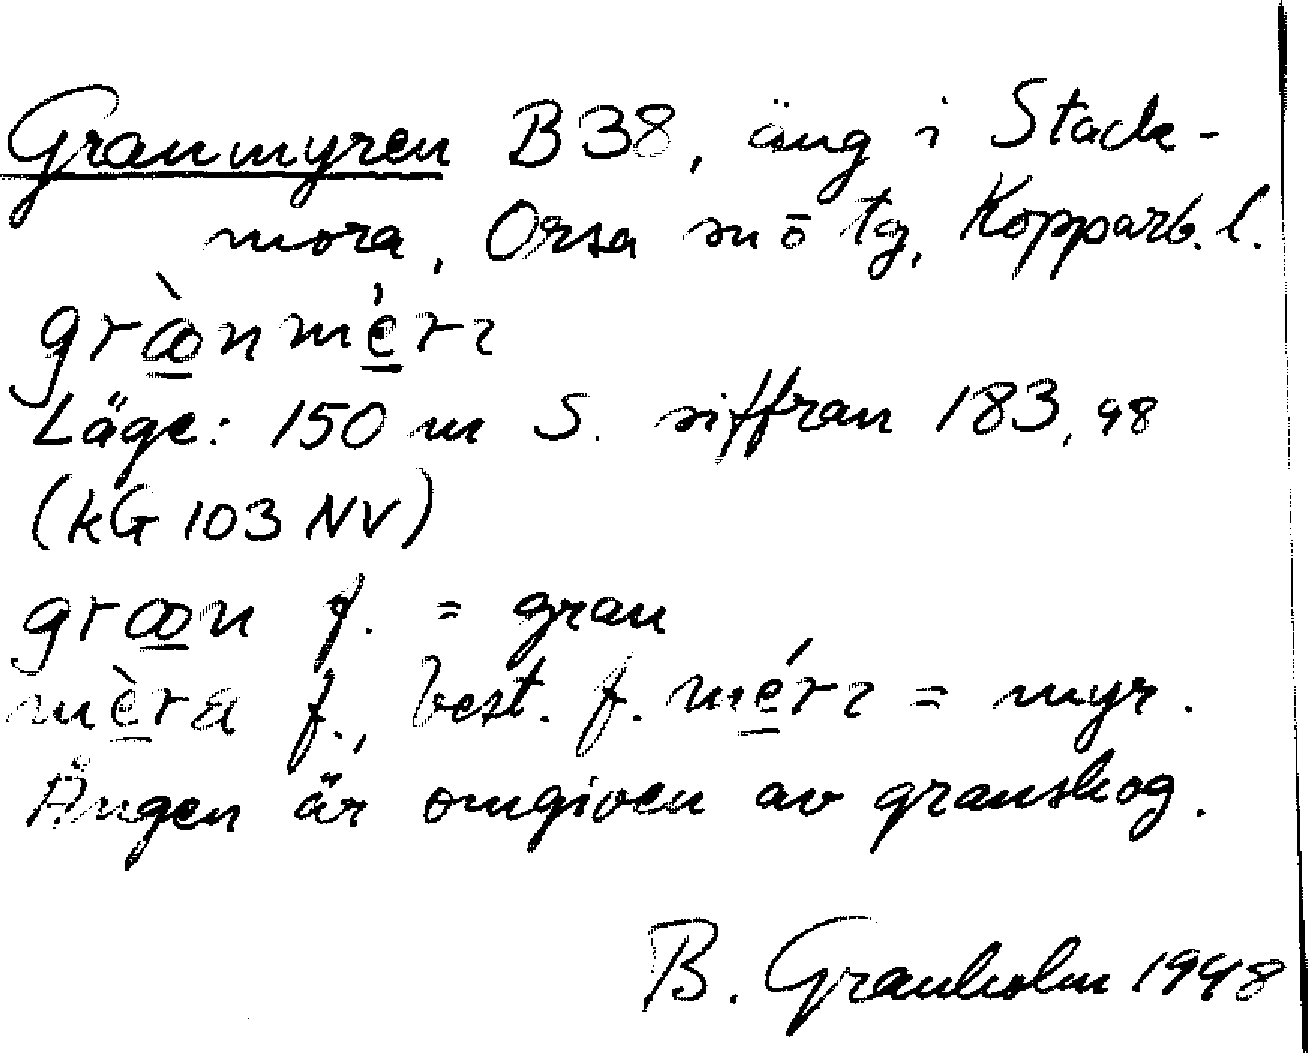 Granmyren B 38, äng i Stack-
mora, Orsa sn ö tg, Kopparb. l.
Läge: 150 m S. siffran 183,98
(kG 103 NV)
f. = gran
f., best. f. = myr.
Ängen är omgiven av granskog.
B. Granholm 1948